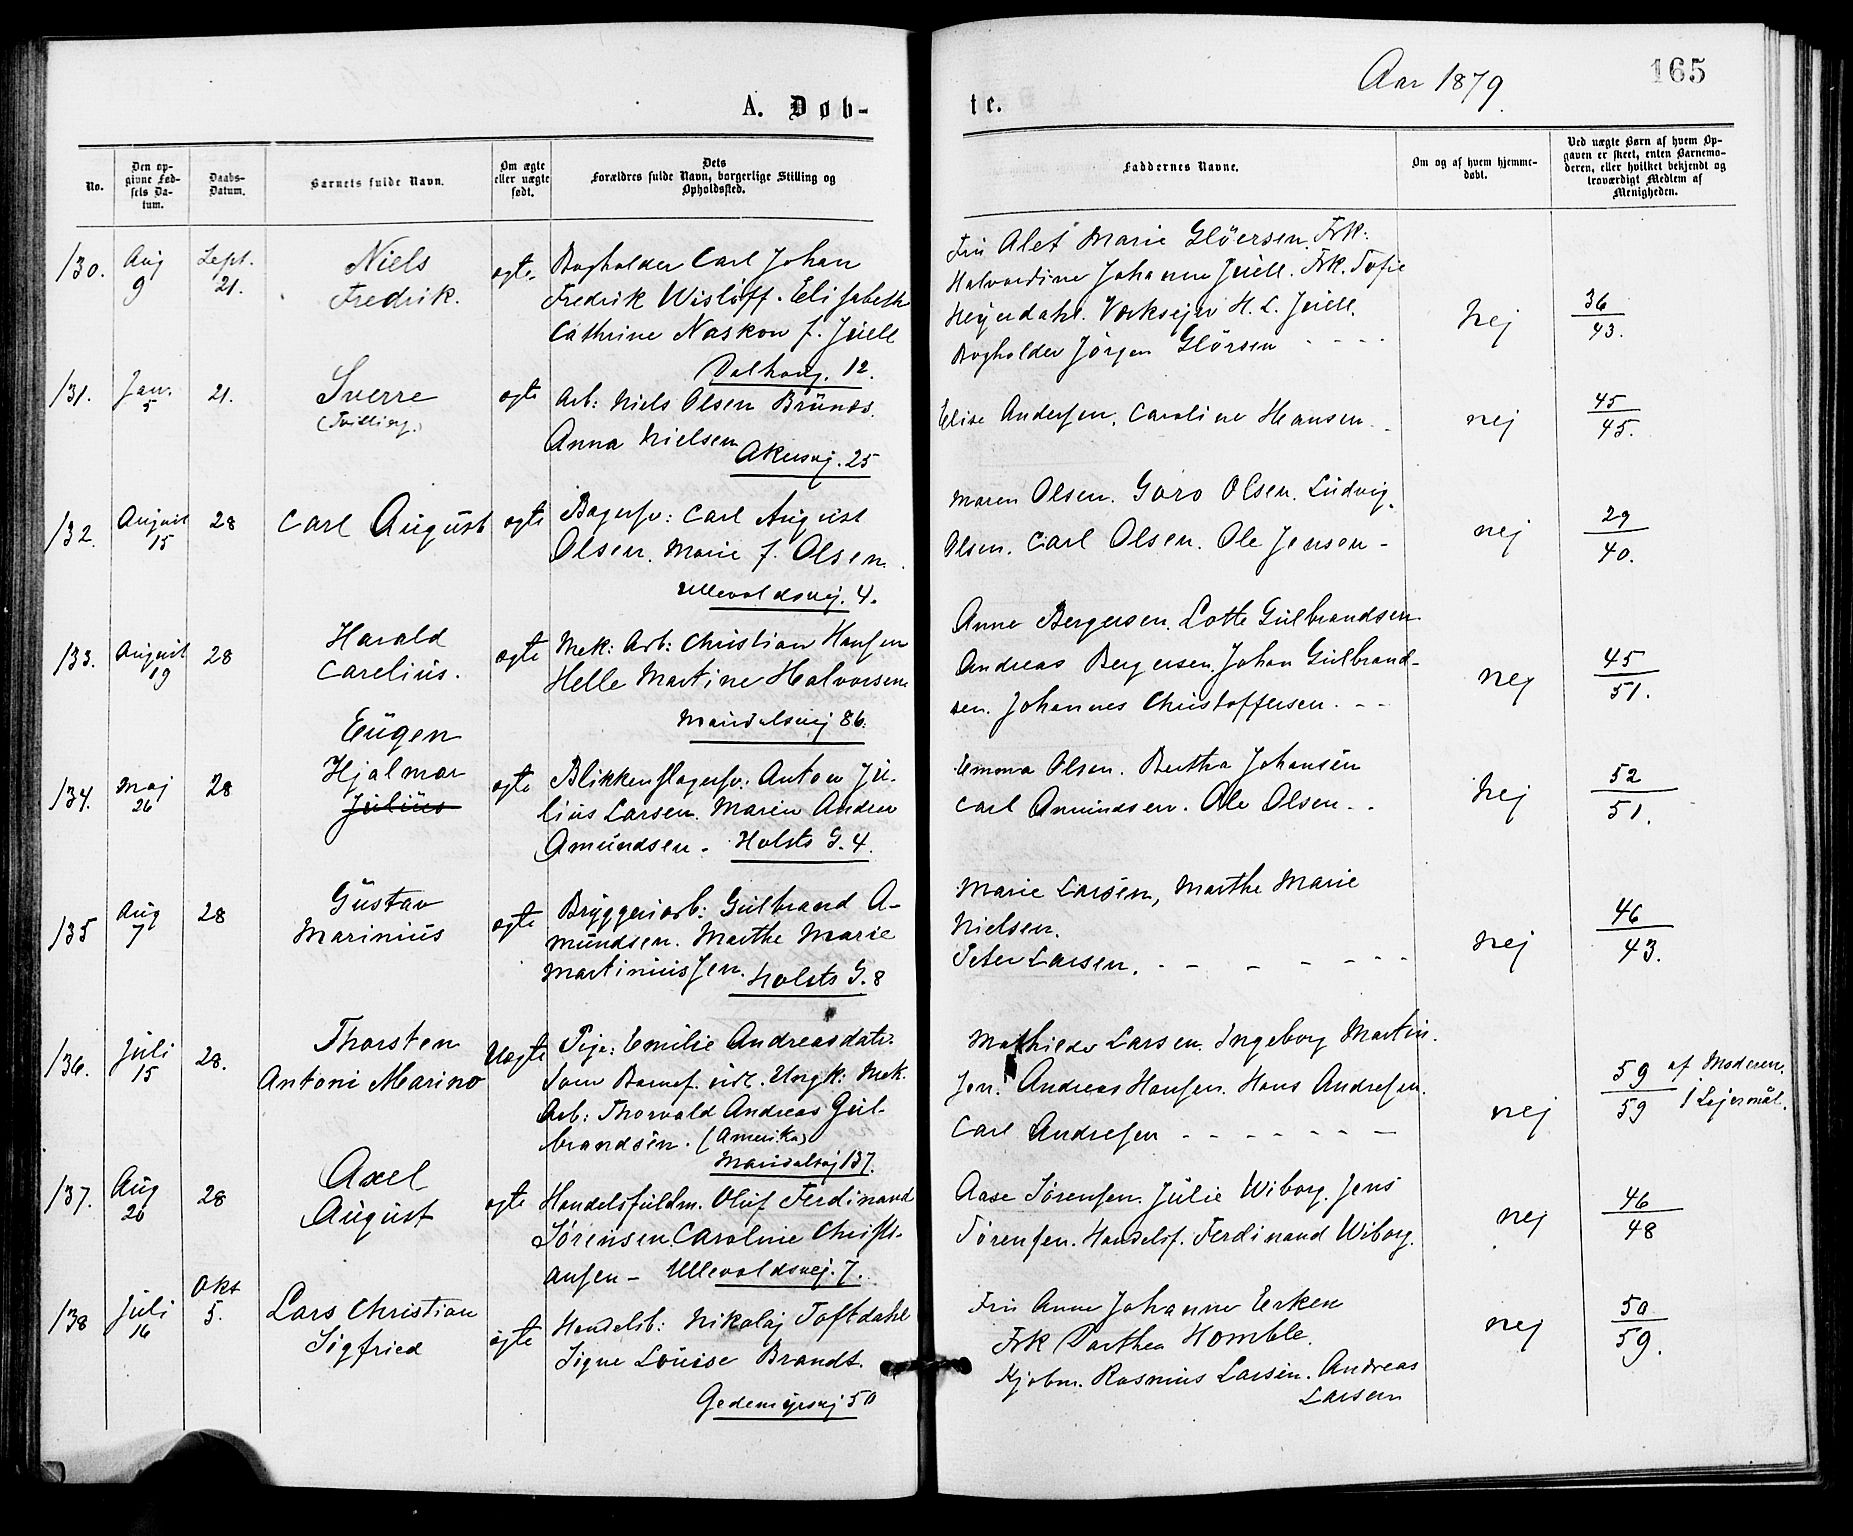 Aar 1879.
165
A. Døb-
te.
No.
Den op-
givne Fød-
sels Da-
tum.
Daabs-
Datum.
Barnets fulde Navn.
Om ægte
eller uægte
født.
Dets
Forældres fulde Navn, borgerlige Stilling og
Opholdssted.
Faddernes Navne.
Om og af hvem hjemme-
døbt.
Ved uægte Børn af hvem Op-
gaven er skeet, enten Barnemo-
deren, eller hvilket bekjendt og
troværdigt Medlem af
Menigheden.
130.
Aug
9
Sept.
21.
Niels
Fredrik.
ægte
Bogholder Carl Johan
Fredrik Wisløff. Elisabeth
Cathrine Naskou f. Juell
12.
Fru Alet Marie Gløersen. Frk:
Halvardine Johanne Juell. Frk. Sofie
Heyerdahl. Værksejer H. L. Juell.
Bogholder Jørgen Glørsen - - - -
Nej
36
43.
131.
Jan.
5
21.
Sverre
(Tvilling.)
ægte
Arb: Niels Olsen
Anna Nielsen
Akersvej. 25
Elise Andersen. Caroline Hansen - -
nej
45
45.
132.
August
15
28
Carl August
ægte
Bagersv: Carl August
Olsen. Marie f. Olsen.
Ullevoldsvej. 4.
Maren Olsen. Goro Olsen. Ludvig
Olsen. Carl Olsen. Ole Jensen -
nej
29
40.
133.
August
19
28
Harald
Carelius.
ægte
Mek: Arb: Christian Hansen
Helle Martine Halvorsen
Maridalsvej 86.
Anne Bergersen. Lotte Gulbrandsen.
Andreas Bergersen. Johan Gulbrand-
sen. Johannes Christoffersen. - -
nej
45
51.
134.
Maj
26
28
Eugen
Hjalmar
Julius
ægte
Blikkenslagersv: Anton Ju-
lius Larsen. Maren Andrea
Amundsen - Holsts G. 4.
Emma Olsen. Bertha Johansen
Carl Amundsen. Ole Olsen - -
Nej
52
51.
135
Aug
7
28
Gustav
Marinius
ægte
Bryggeriarb: Gulbrand A-
mundsen. Marthe Marie
Martiniussen. Holsts G. 8
Marie Larsen, Marthe Marie
Nielsen.
Peter Larsen. - - - - - -
nej
46
43.
136.
Juli
15
28.
Thorsten
Antoni Marino
Uægte
Pige: Emilie Andreasdatr.
Som Barnef. udl. Ungk: Mek.
Arb: Thorvald Andreas Gul-
brandsen. (Amerika)
Maridalsvej 137.
Mathilde Larsen. Ingeborg Martin-
sen. Andreas Hansen. Hans Andresen.
Carl Andresen - - - - - - -
nej
59
59
af Moderen.
1 Lejermål.
137.
Aug
20
28
Axel
August
ægte
Handelsfuldm. Oluf Ferdinand
Sørensen. Caroline Christi-
ansen - Ullevoldsvej. 7.
Aase Sørensen. Julie Wiborg. Jens
Sørensen. Handelsf. Ferdinand Wiborg.
nej
46
48
138
Juli
16
Okt
5.
Lars Christian
Sigfried
ægte
Handelsb: Nikolaj Toftdahl
Signe Louise Brandt.
Gedemyrsvej 50
Fru Anne Johanne Erken
Frk Dorthea Homble.
Kjøbm. Rasmus Larsen. Andreas
Larsen
nej
50
59.